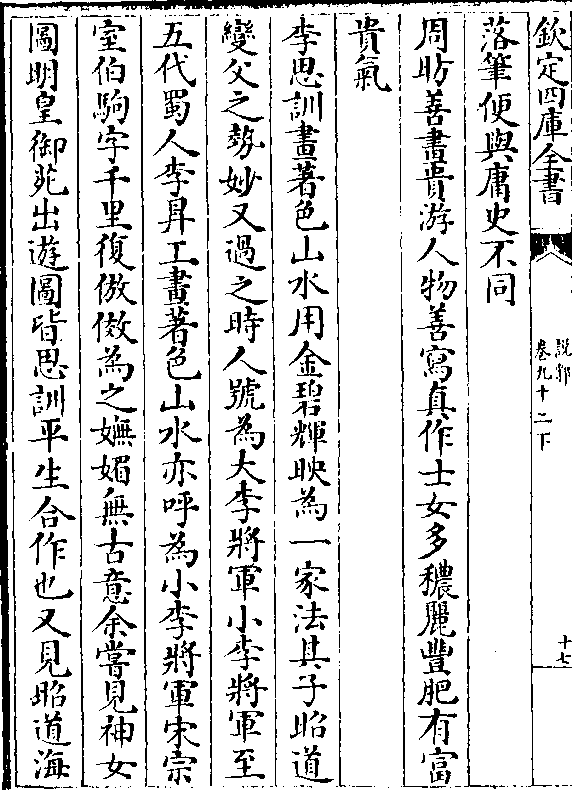 欽定四庫全書
說郛
卷九十二下
十七
落筆便與庸史不同
周昉善畫貴游人物善寫真作士女多穠麗豐肥有富
貴氣
李思訓畫著色山水用金碧輝映為一家法其子昭道
變父之勢妙又過之時人號為大李將軍小李將軍至
五代蜀人李昇工畫著色山水亦呼為小李將軍宋宗
室伯駒字千里復倣傚為之嫵媚無古意余嘗見神女
圖明皇御苑出遊圖皆思訓平生合作也又見昭道海